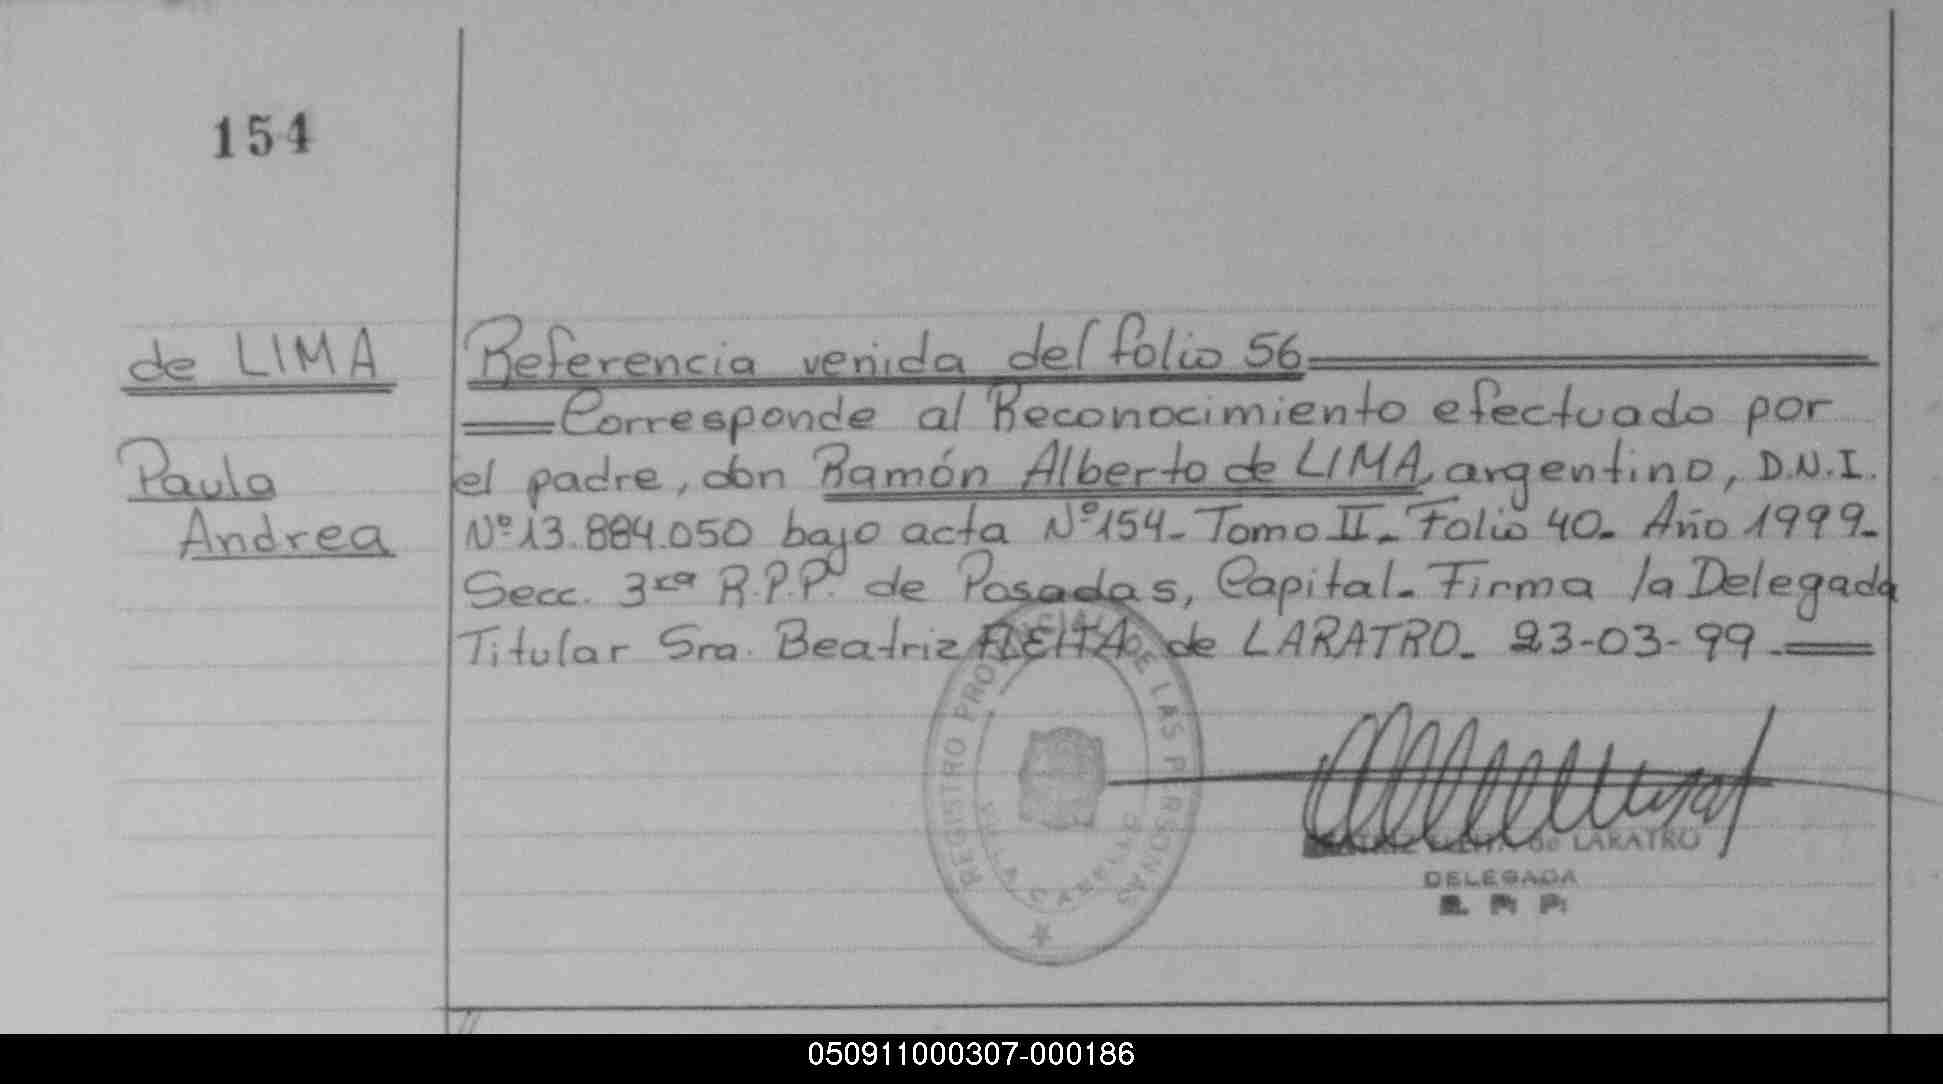 154
de LIMA
Paula
Andrea
Referencia venida del folio 56
Corresponde al Reconocimiento efectuado por
el padre, don Ramón Alberto de LIMA, argentino, D.N.I.
Nº 13.884.050 bajo acta Nº 154- Tomo II- Folio 40. Año 1999-
Secc. 3ra R.P.P. de Posadas, Capital. Firma la Delegada
Titular Sra. Beatriz FLEITA de LARATRO. 23-03-99.
REGISTRO PROVINCIAL DE LAS PERSONAS
de LARATRO
DELEGADA
R. P. P.
050911000307-000186